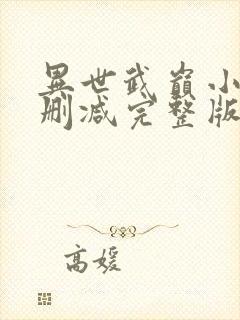 異世武巔小
刪减完整版
高媛